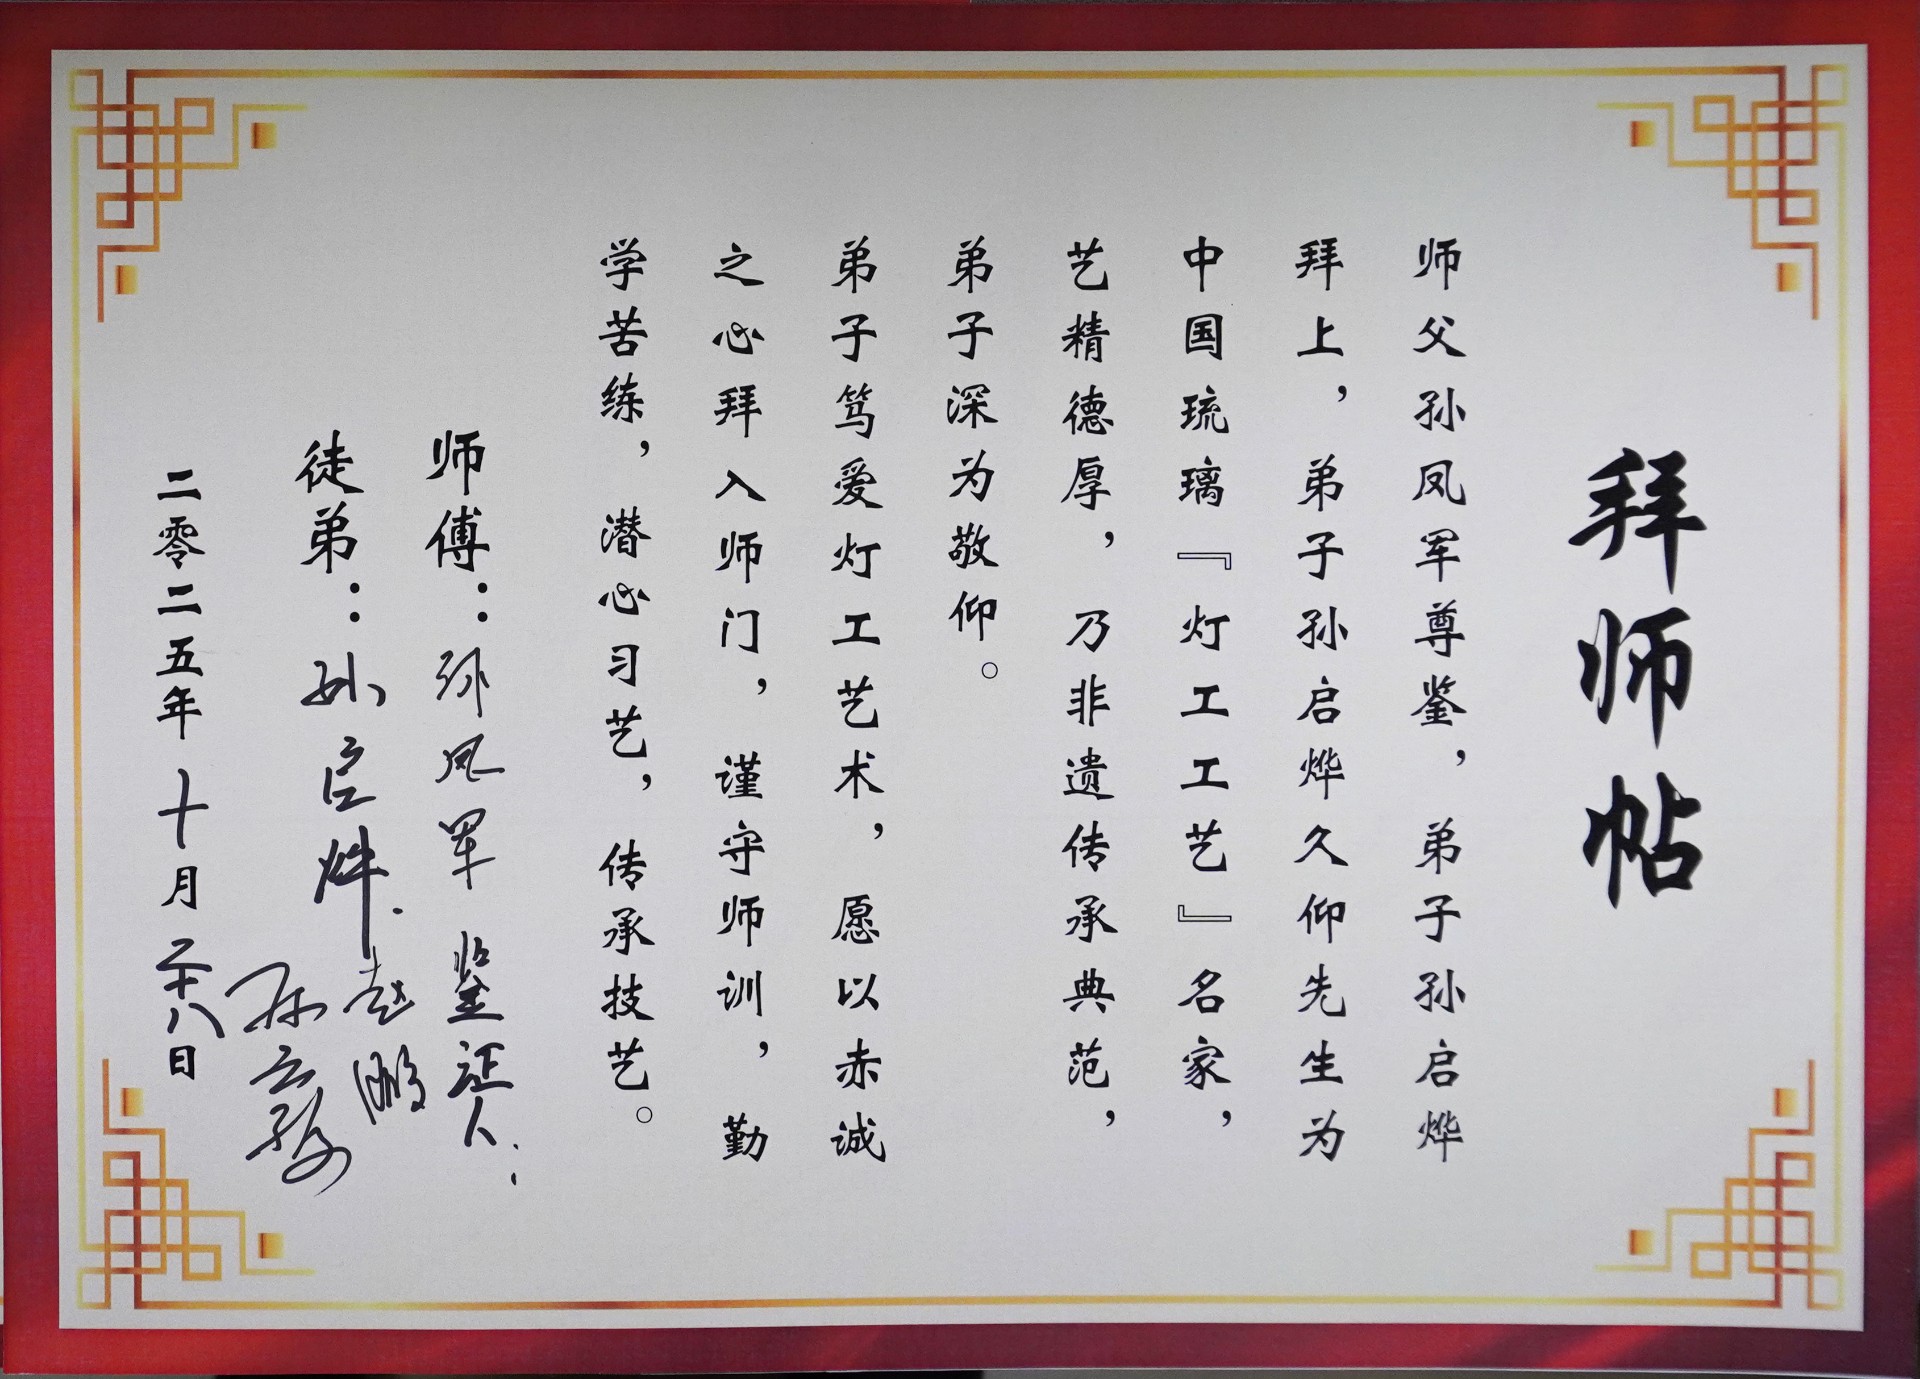 拜师帖
师父孙凤军尊鉴，弟子孙启烨
拜上，弟子孙启烨久仰先生为
中国琉璃『灯工工艺』名家，
艺精德厚，乃非遗传承典范，
弟子深为敬仰。
弟子笃爱灯工艺术，愿以赤诚
之心拜入师门，谨守师训，勤
学苦练，潜心习艺，传承技艺。
师傅：孙凤军 鉴证人：
徒弟：孙启烨 赵鹏
孙
二零二五年十月二十八日